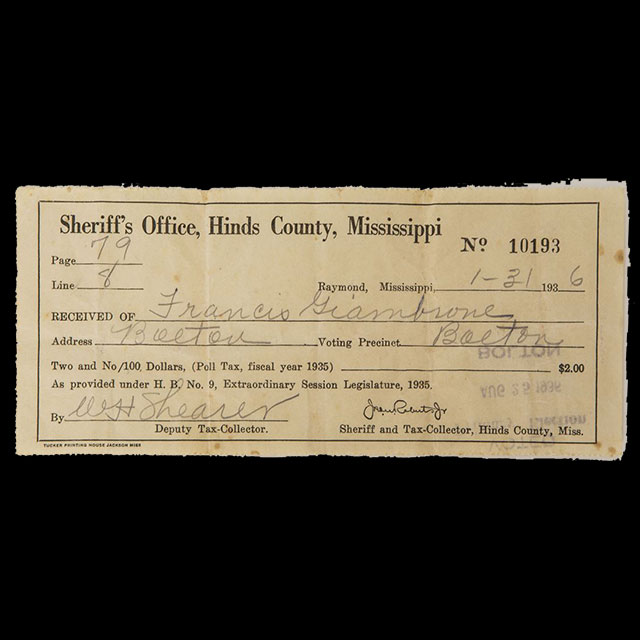 Sheriff's Office, Hinds County, Mississippi
Nº 10193
Page 79
Line 8
Raymond, Mississippi, 1-31 1936
RECEIVED OF Francis Giambrone
Address Bolton Voting Precinct Bolton
Two and No/100 Dollars, (Poll Tax, fiscal year 1935) $2.00
As provided under H. B. No. 9, Extraordinary Session Legislature, 1935.
By W H Shearer
Deputy Tax-Collector. Sheriff and Tax-Collector, Hinds County, Miss.
TUCKER PRINTING HOUSE JACKSON MISS
BOLTON
AUG 25 1936
Election
VOTED